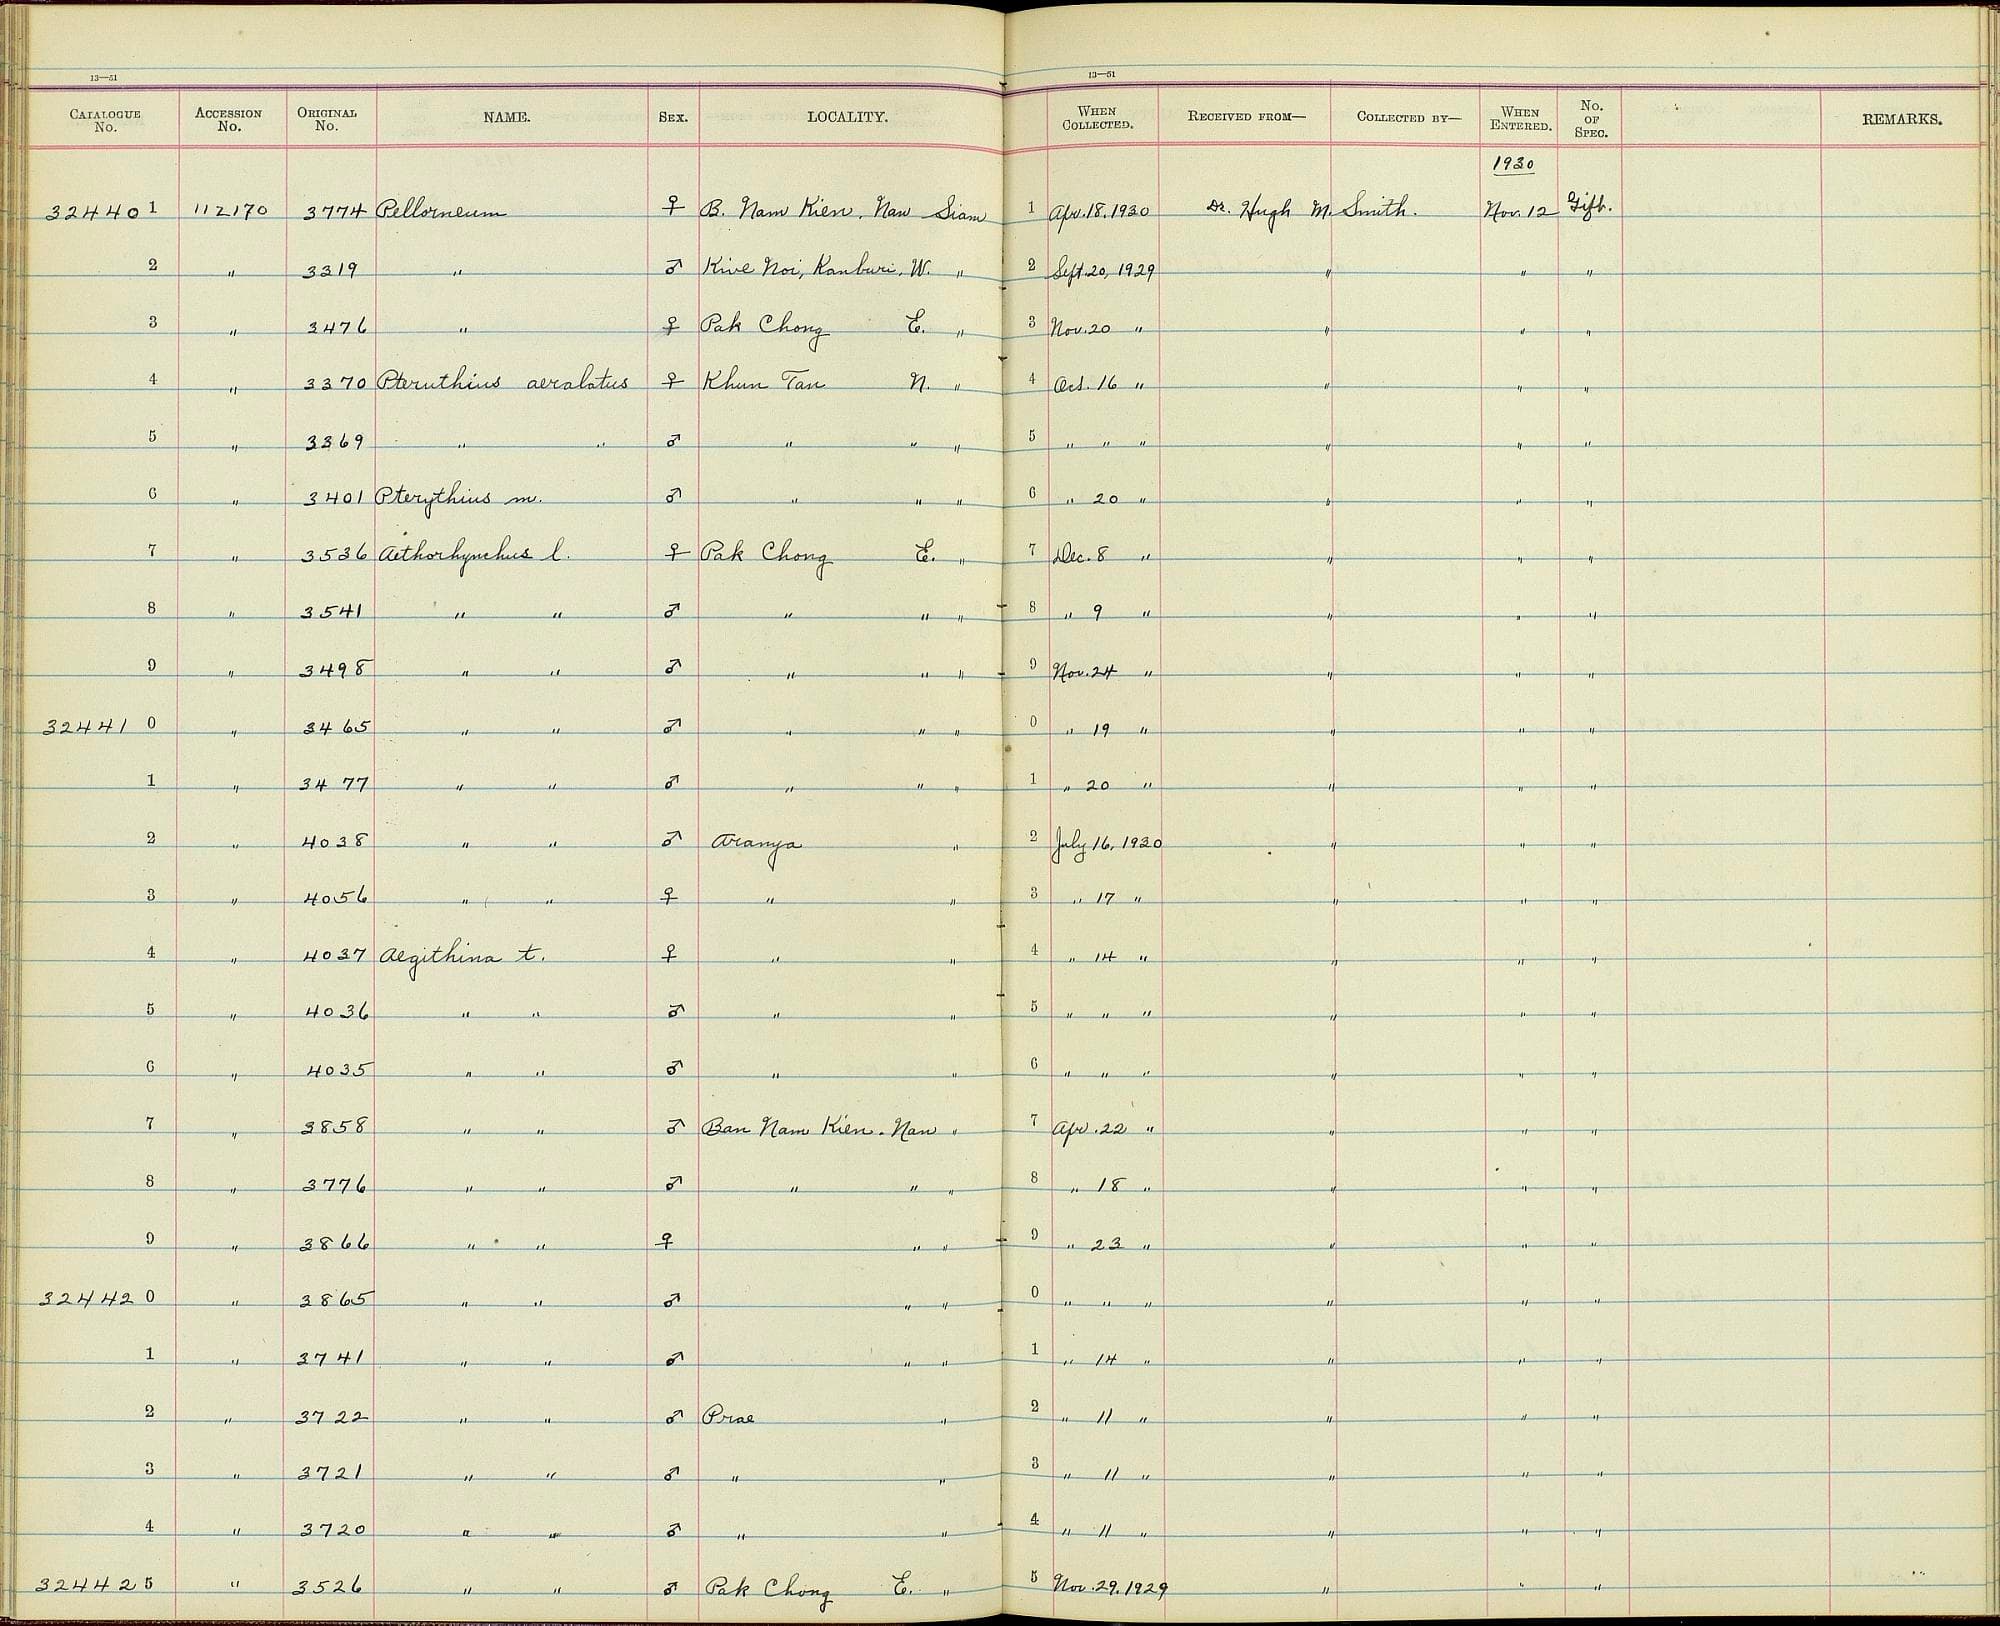 13—51 13—51
CATALOGUE No. ACCESSION No. ORIGINAL No. NAME. SEX. LOCALITY. WHEN COLLECTED. RECEIVED FROM— COLLECTED BY— WHEN ENTERED. No. OF SPEC. REMARKS.
1930
32440 1 112170 3774 Pellorneum ♀ B. Nam Kien, Nan Siam 1 Apr. 18, 1930 Dr. Hugh M. Smith. Nov. 12 Gift.
2 " 3319 " ♂ Kwe Noi, Kanburi, W. " 2 Sept. 20, 1929 " " "
3 " 3476 " ♀ Pak Chong E. " 3 Nov. 20 " " " "
4 " 3370 Pteruthius aeralatus ♀ Khun Tan N. " 4 Oct. 16 " " " "
5 " 3369 " " ♂ " " " 5 " " " " " "
6 " 3401 Pterythius m. ♂ " " " 6 " 20 " " " "
7 " 3536 Aethorhynchus l. ♀ Pak Chong E. " 7 Dec. 8 " " " "
8 " 3541 " " ♂ " " " 8 " 9 " " " "
9 " 3498 " " ♂ " " " 9 Nov. 24 " " " "
32441 0 " 3465 " " ♂ " " " 0 " 19 " " " "
1 " 3477 " " ♂ " " " 1 " 20 " " " "
2 " 4038 " " ♂ Aranya " 2 July 16, 1930 " " "
3 " 4056 " " ♀ " " 3 " 17 " " " "
4 " 4037 Aegithina t. ♀ " " 4 " 14 " " " "
5 " 4036 " " ♂ " " 5 " " " " " "
6 " 4035 " " ♂ " " 6 " " " " " "
7 " 3858 " " ♂ Ban Nam Kien. Nan " 7 Apr. 22 " " " "
8 " 3776 " " ♂ " " " 8 " 18 " " " "
9 " 3866 " " ♀ " " 9 " 23 " " " "
32442 0 " 3865 " " ♂ " " 0 " " " " " "
1 " 3741 " " ♂ " " 1 " 14 " " " "
2 " 3722 " " ♂ Prae " 2 " 11 " " " "
3 " 3721 " " ♂ " " 3 " 11 " " " "
4 " 3720 " " ♂ " " 4 " 11 " " " "
32442 5 " 3526 " " ♂ Pak Chong E. " 5 Nov. 29, 1929 " " "